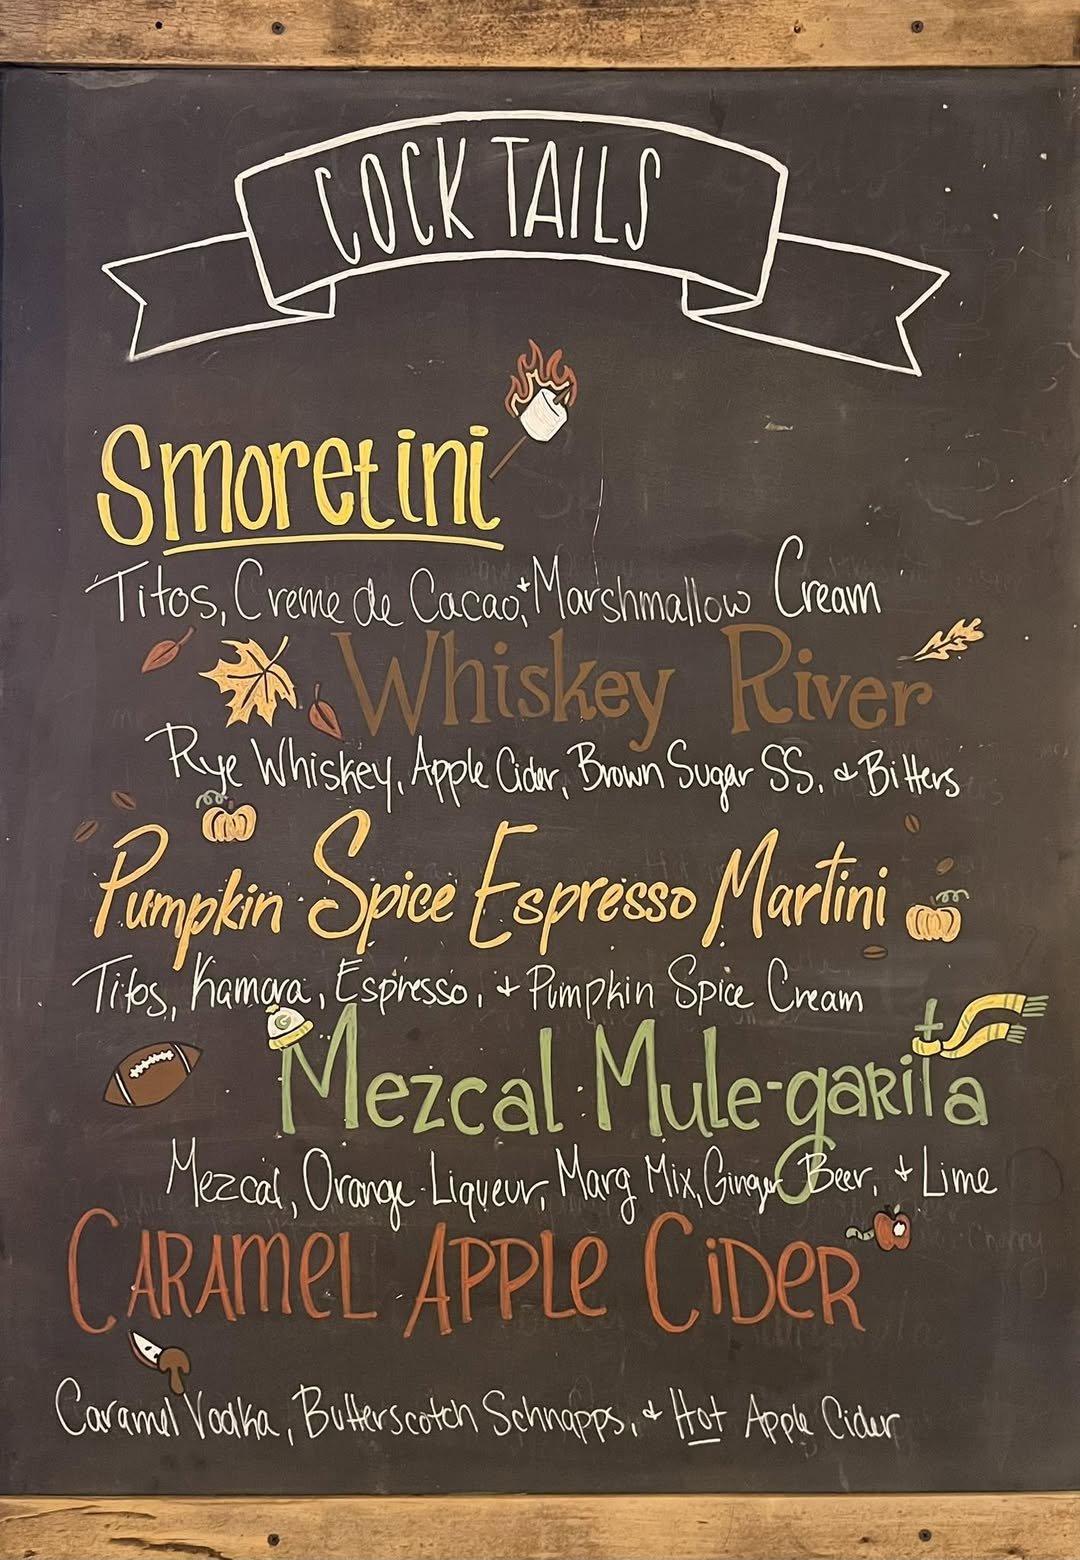 COCKTAILS
Smoretini
Titos, Creme de Cacao, + Marshmallow Cream
Whiskey River
Rye Whiskey, Apple Cider, Brown Sugar SS, & Bitters
Pumpkin Spice Espresso Martini
Titos, Kamora, Espresso, + Pumpkin Spice Cream
G
Mezcal Mule-garita
Mezcal, Orange Liqueur, Marg Mix, Ginger Beer, + Lime
CARAMEL APPLE CiDER
Caramel Vodka, Butterscotch Schnapps, + Hot Apple Cider